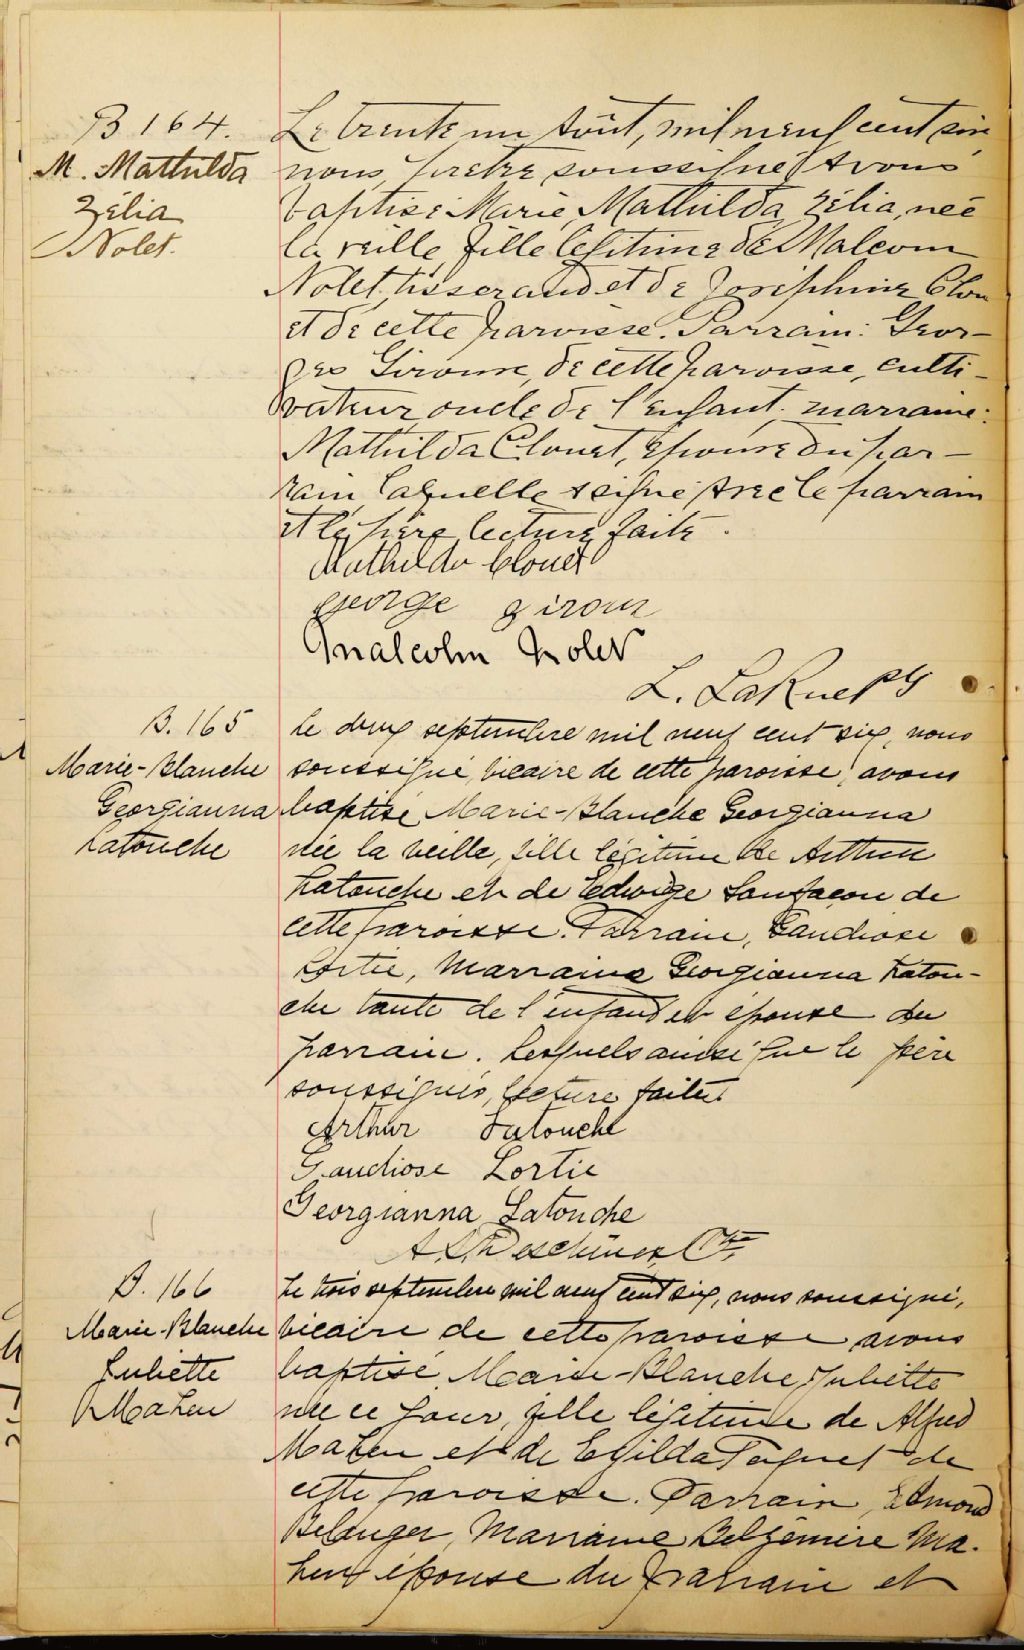 B 164.
M. Mathilda
Zélia
Nolet.
Le trente un août, mil neuf cent six
nous, prêtre soussigné avons
baptisé Marie, Mathilda, Zélia, née
la veille, fille légitime de Malcom
Nolet, tisserand et de Joséphine Clou
et de cette paroisse. Parrain: Geor-
ges Giroux, de cette paroisse, culti-
vateur, oncle de l'enfant. marraine:
Mathilda Clouet, épouse du par-
rain laquelle a signé avec le parrain
et le père, lecture faite.
Mathilda Clouet
George Giroux
Malcolm Nolet
L. LaRue
B. 165
Marie-Blanche
Georgianna
Latouche
Le deux septembre mil neuf cent six, nous
soussigné, vicaire de cette paroisse, avons
baptisé Marie-Blanche Georgianna
née la veille, fille légitime de Arthur
Latouche et de Edwidge Sanfaçon de
cette paroisse. Parrain, Gaudiose
Lortie, Marraine Georgianna Latou-
che tante de l'enfant et épouse du
parrain. Lesquels ainsi que le père
soussignés, lecture faite
Arthur Latouche
Gaudiose Lortie
Georgianna Latouche
Deschênes
B. 166
Marie-Blanche
Juliette
Maheu
Le trois septembre mil neuf cent six, nous soussigné,
vicaire de cette paroisse avons
baptisé Marie-Blanche Juliette
née ce jour, fille légitime de Alfred
Maheu et de Exilda Paquet de
cette paroisse. Parrain, Edmond
Belanger, Marraine Belzémire Ma-
heu épouse du parrain et